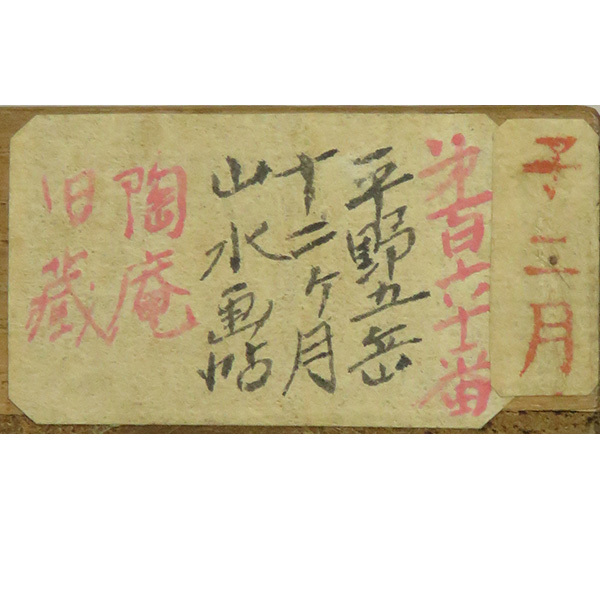 子三月
第百六十番
平野五岳
十二ヶ月
山水画帖
陶庵
旧蔵